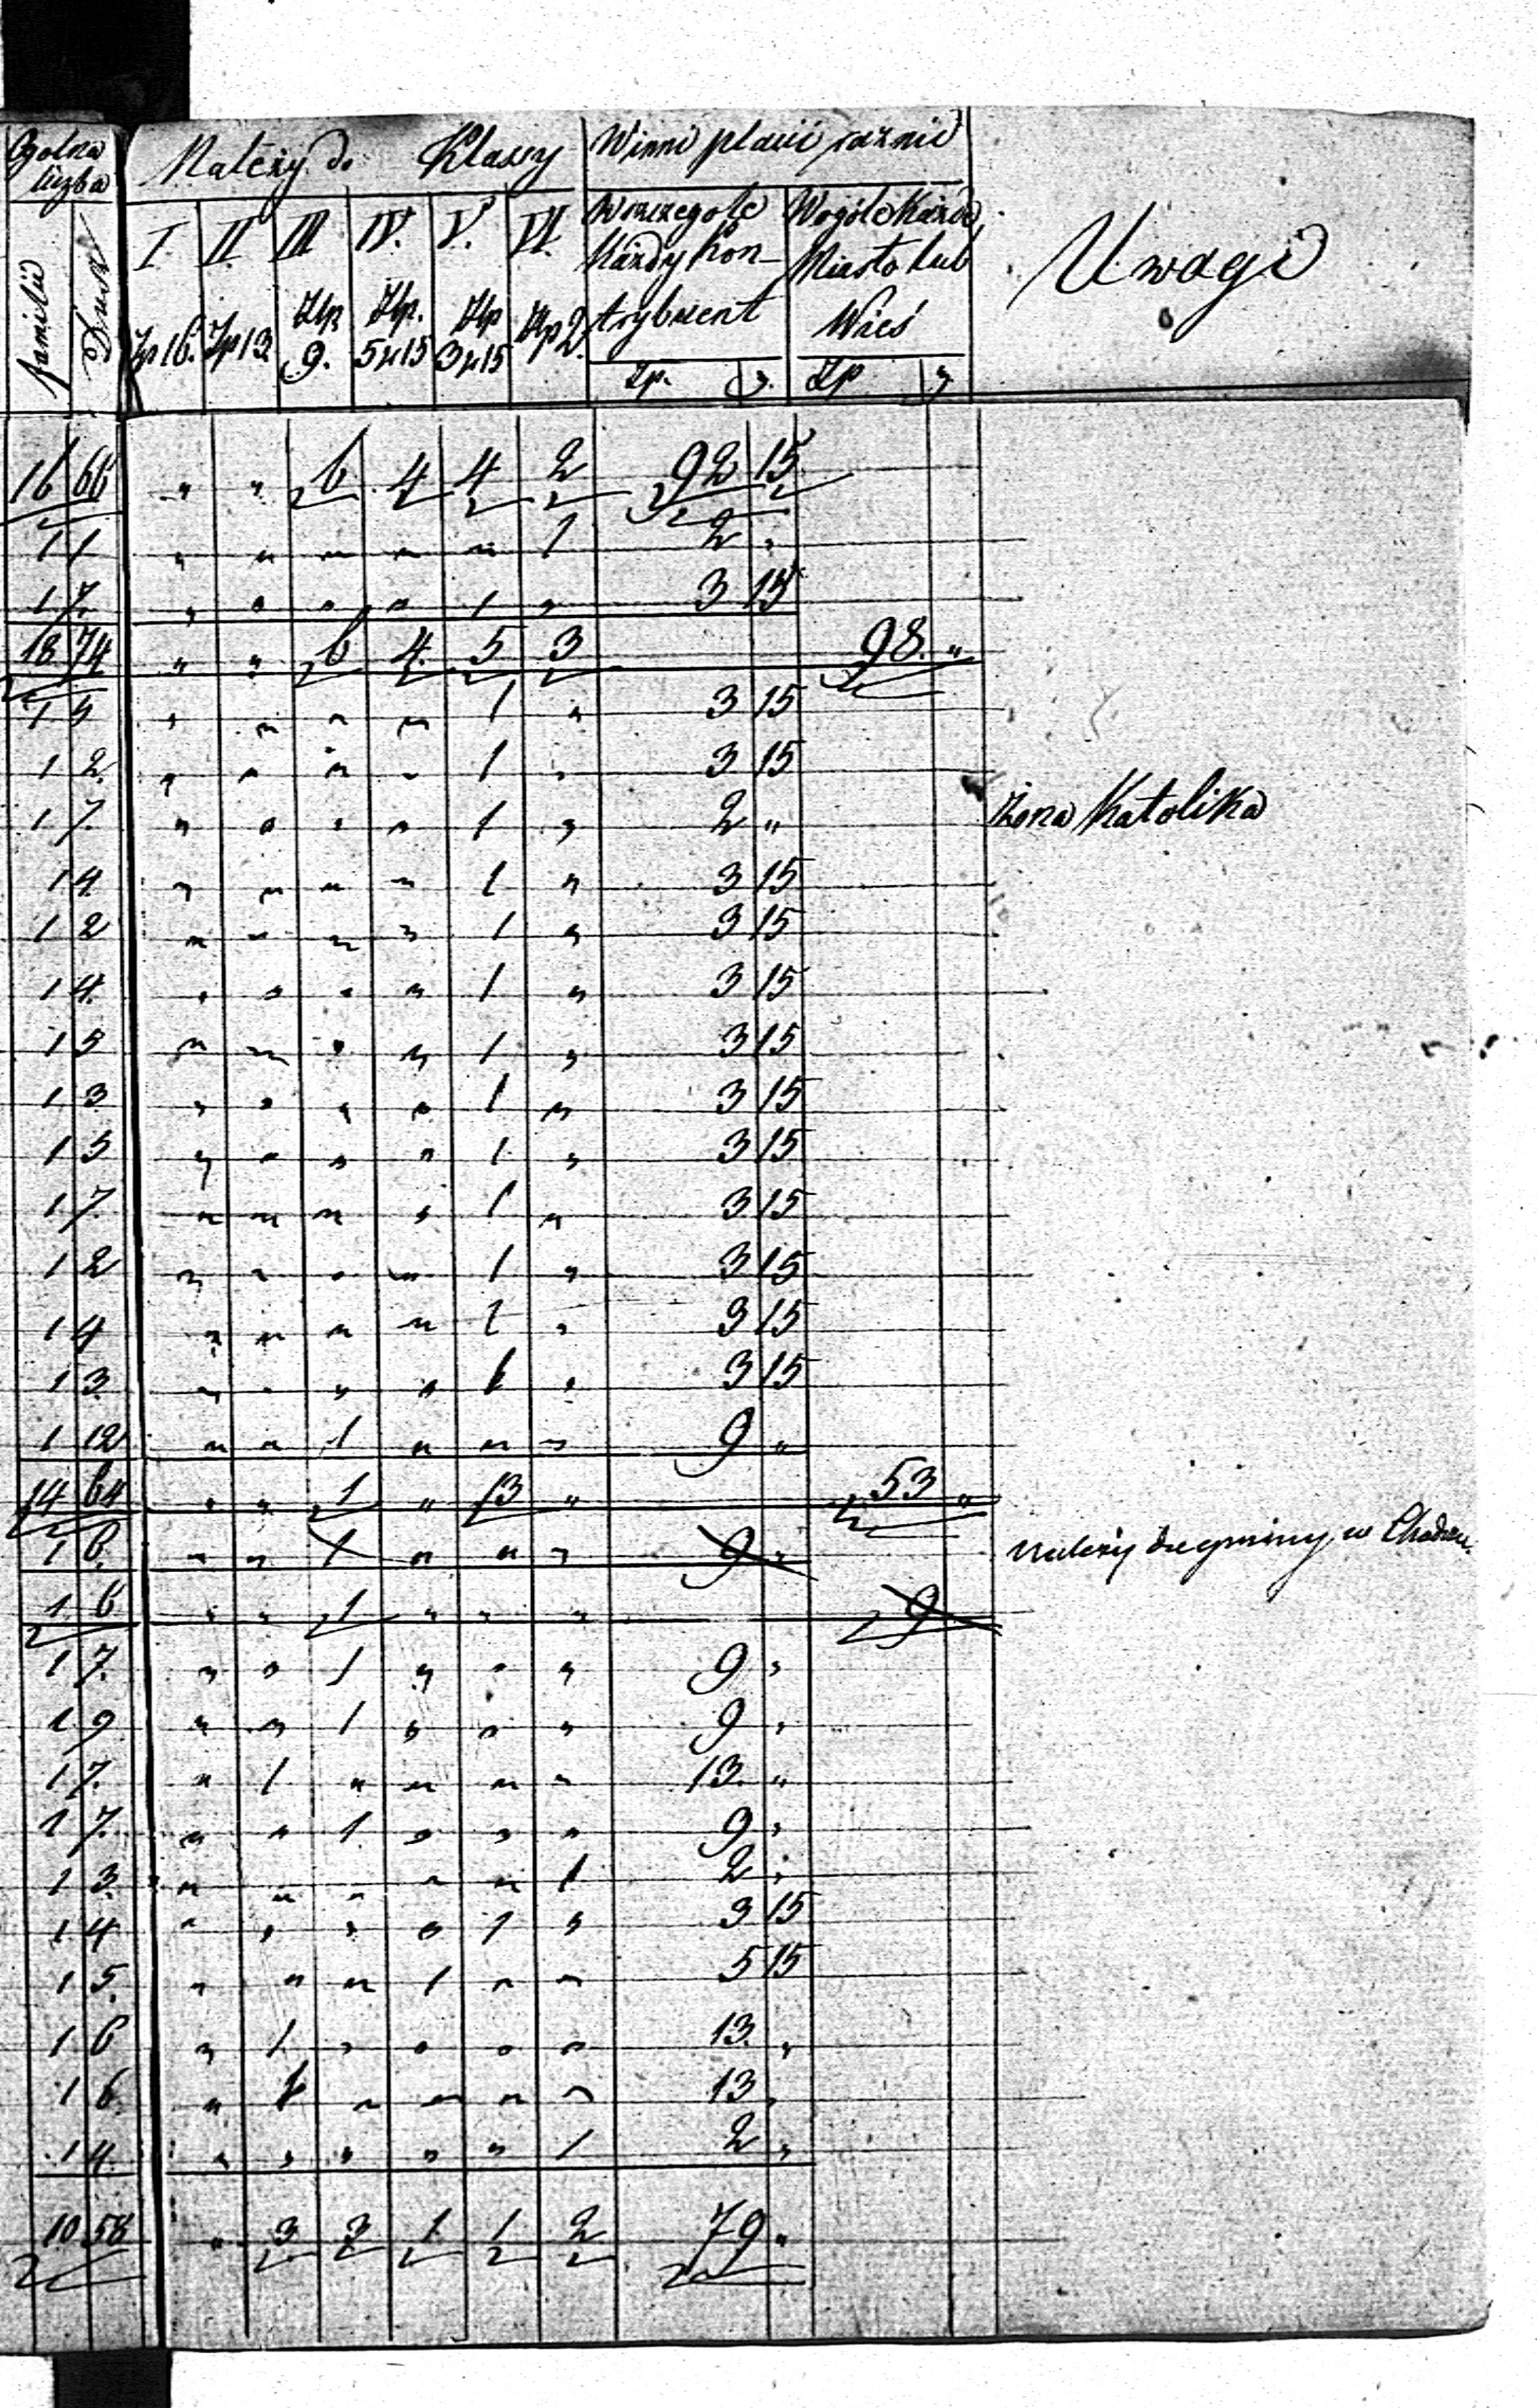 Ogólna liczba | Należy do Klassy | Winni płacić rocznie | Uwagi
familii | Dusz | I. | II. | III | IV. | V. | VI. | W szczególe Każdy Kontrybuent | Wogóle Każde Miasto lub Wieś
Zp 16. | Zp 13 | Złp 9. | Złp. 5 gr 15 | Złp 3 gr 15 | Złp 2. | Zp. | g. | Zp | g
16 | 66 | " | " | 6 | 4 | 4 | 2 | 92 | 15
1 | 1 | " | " | " | " | " | 1 | 2 | "
1 | 7. | " | " | " | " | 1 | " | 3 | 15
18 | 74 | " | " | 6 | 4. | 5 | 3 | | | 98. | "
1 | 5 | " | " | " | " | 1 | " | 3 | 15
1 | 2. | " | " | " | " | 1 | " | 3 | 15
1 | 7. | " | " | " | " | 1 | " | 2 | " | Żona Katolika
1 | 4 | " | " | " | " | 1 | " | 3 | 15
1 | 2 | " | " | " | " | 1 | " | 3 | 15
1 | 4. | " | " | " | " | 1 | " | 3 | 15
1 | 5 | " | " | " | " | 1 | " | 3 | 15
1 | 3 | " | " | " | " | 1 | " | 3 | 15
1 | 5 | " | " | " | " | 1. | " | 3 | 15
1 | 7. | " | " | " | " | 1 | " | 3 | 15
1 | 2 | " | " | " | " | 1 | " | 3 | 15
1 | 4 | " | " | " | " | 1 | " | 3 | 15
1 | 3. | " | " | " | " | 1 | " | 3 | 15
1 | 12 | " | " | 1 | " | " | " | 9 | "
14 | 64 | " | " | 1 | " | 13 | " | | | 53 | "
1 | 6. | " | " | 1 | " | " | " | 9 | " | należy do gminy w
1 | 6 | " | " | 1 | " | " | " | | | 9
1 | 7. | " | " | 1 | " | " | " | 9 | "
1 | 9 | " | " | 1 | " | " | " | 9 | "
1 | 7. | " | 1 | " | " | " | " | 13. | "
1 | 7. | " | " | 1. | " | " | " | 9 | "
1 | 3. | " | " | " | " | " | 1 | 2 | "
1 | 4 | " | " | " | " | 1 | " | 3 | 15
1 | 5. | " | " | " | 1 | " | " | 5 | 15
1 | 6 | " | 1 | " | " | " | " | 13. | "
1 | 6. | " | 1 | " | " | " | " | 13 | "
1 | 4. | " | " | " | " | " | 1 | 2 | "
10 | 58 | " | 3 | 3 | 1 | 1 | 2 | 79 | "